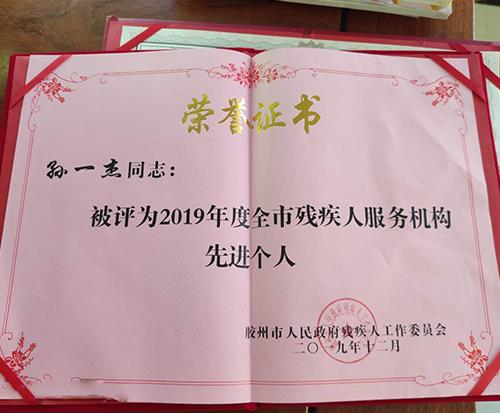 荣誉证书
孙一杰同志：
被评为2019年度全市残疾人服务机构
先进个人
胶州市人民政府残疾人工作委员会
二〇一九年十二月